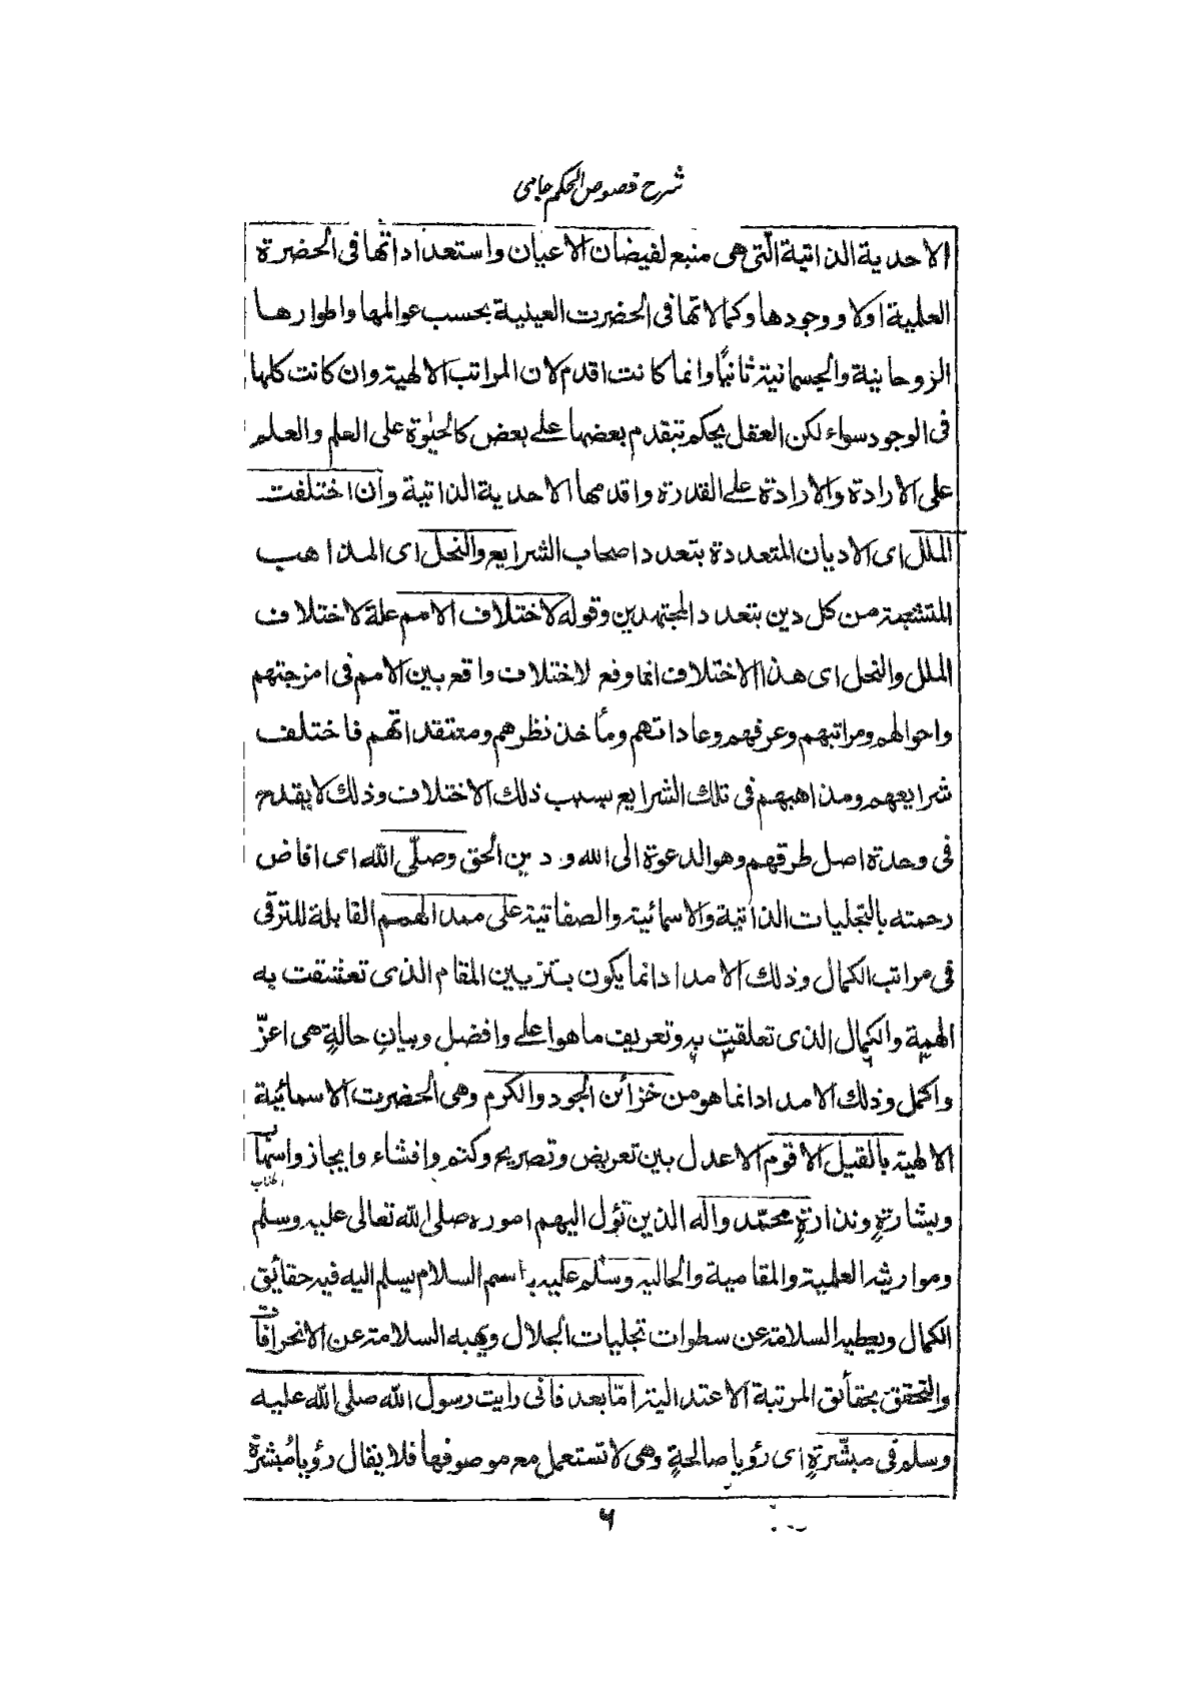 شرح فصوص الحکم جامی
الاحدية الذاتية الّتى هى منبع لفيضان الاعيان واستعداداتها فى الحضرة
العلمية اولا ووجودها وكمالاتها فى الحضرت العينية بحسب عوالمها واطوارها
الروحانية والجسمانية ثانيًا وانما كانت اقدم لان المراتب الالهية وان كانت كلها
فى الوجود سواء لكن العقل يحكم بتقدم بعضها على بعض كالحيٰوة على العلم والعلم
على الارادة والارادة على القدرة واقدمها الاحدية الذاتية وان اختلفت
الملل اى الاديان المتعددة بتعدد اصحاب الشرايع والنحل اى المذاهب
المتشعبة من كل دين بتعدد المجتهدين وقوله لاختلاف الامم علة لاختلاف
الملل والنحل اى هذا الاختلاف انما وقع لاختلاف واقع بين الامم فى امزجتهم
واحوالهم ومراتبهم وعرفهم وعاداتهم ومأخذ نظرهم ومعتقداتهم فاختلف
شرايعهم ومذاهبهم فى تلك الشرايع بسبب ذلك الاختلاف وذلك لا يقدح
فى وحدة اصل طرقهم وهو الدعوة الى الله و دين الحق وصلّى الله اى افاض
رحمته بالتجليات الذاتية والاسمائية والصفاتية على ممد الهمم القابلة للترقى
فى مراتب الكمال وذلك الامداد انما يكون بتزيين المقام الذى تعشقت به
الهمة والكمال الذى تعلقت به وتعريف ما هو اعلى وافضل وبيان حالةٍ هى اعزّ
واكمل وذلك الامداد انما هو من خزائن الجود والكرم وهى الحضرت الاسمائية
الالهية بالقيل الاقوم الاعدل بين تعريض وتصريح وكتم وافشاء وايجاز واسهاب
وبشارةٍ ونذارةٍ محمّد واله الذين تؤل اليهم اموره صلى الله تعالى عليه وسلم
ومواريثه العلمية والمقامية والحالية وسلم عليه باسم السلام يسلم اليه فيه حقايق
الكمال ويعطيه السلامة عن سطوات تجليات الجلال ويهبه السلامة عن الانحرافات
والتحقق بحقائق المرتبة الاعتدالية امّا بعد فانى رايت رسول الله صلى الله عليه
وسلم فى مبشّرةٍ اى رؤيا صالحةٍ وهى لا تستعمل مع موصوفها فلا يقال رؤيا مُبشرةٌ
٦